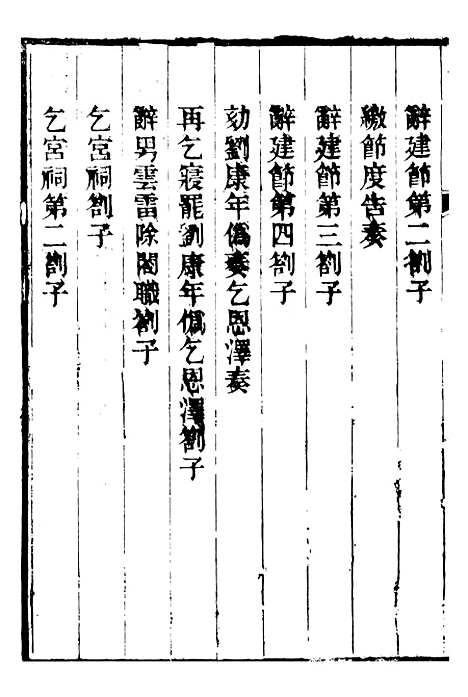 辭建節第二劄子
繳節度告奏
辭建節第三劄子
辭建節第四劄子
劾劉康年僞奏乞恩澤奏
再乞寢罷劉康年僞乞恩澤劄子
辭男雲雷除閣職劄子
乞宮祠劄子
乞宮祠第二劄子